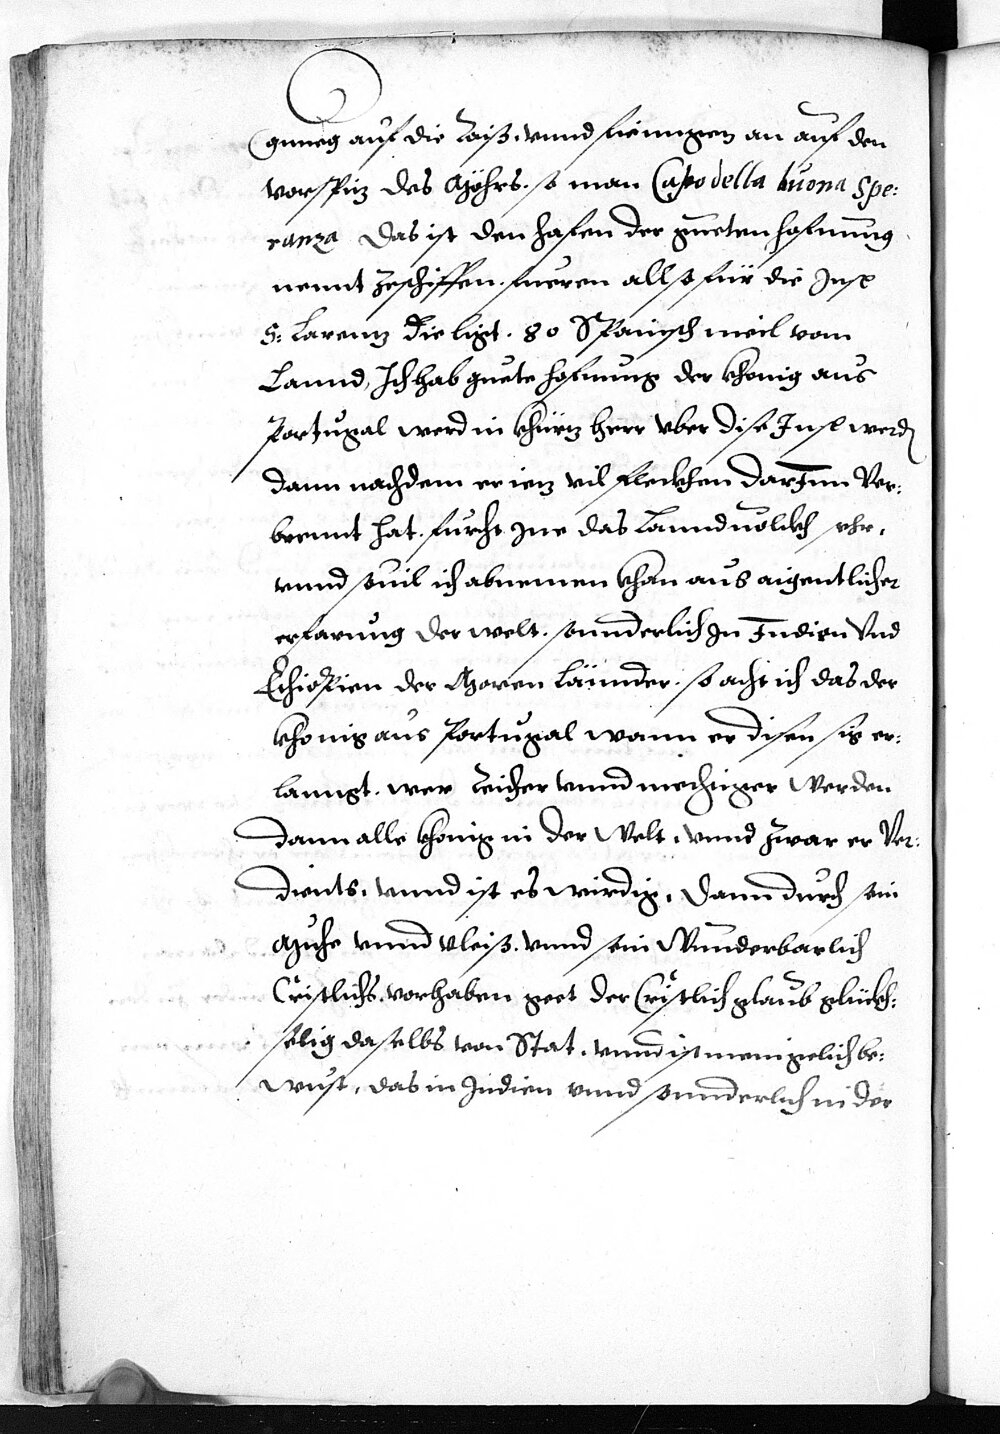 gnueg auf die Raiß. vnnd fiengen an auf den
vorspiz des Möhrs. so man Capo della buona Spe:
ranza das ist den hafen der gueten hofnung
nennt zeschiffen. fueren allso für die Insl
S: Larenz die ligt. 80 Spanisch meil vom
Lannd, Ich hab guete hofnung der khonig aus
Portugal werd in khürz herr vber dise Insl werdn
dann nachdem er iez vil fleckhen darInn Ver:
brennt hat. furcht Ine das Lanndvolckh sehr.
vnnd souil ich abnemen khan aus aigentlicher
erfarung der welt. sonnderlich In Indien Vnd
Ethiopien der Moren Lännder. so acht ich das der
khonig aus Portugal wann er disen sig er:
lanngt. wer Reicher vnnd mechtiger werden
dann alle khonig in der Welt. vnnd zwar er Ver:
dients. vnnd ist es wirdig. dann durch sein
Muhe vnnd vleiß. vnnd sein Wunderbarlich
Cristlichs. vorhaben geet der Cristlich glaub glückh:
selig daselbs von Stat. vnnd ist menigelich be:
wust. das in Indien vnnd sonnderlich in der